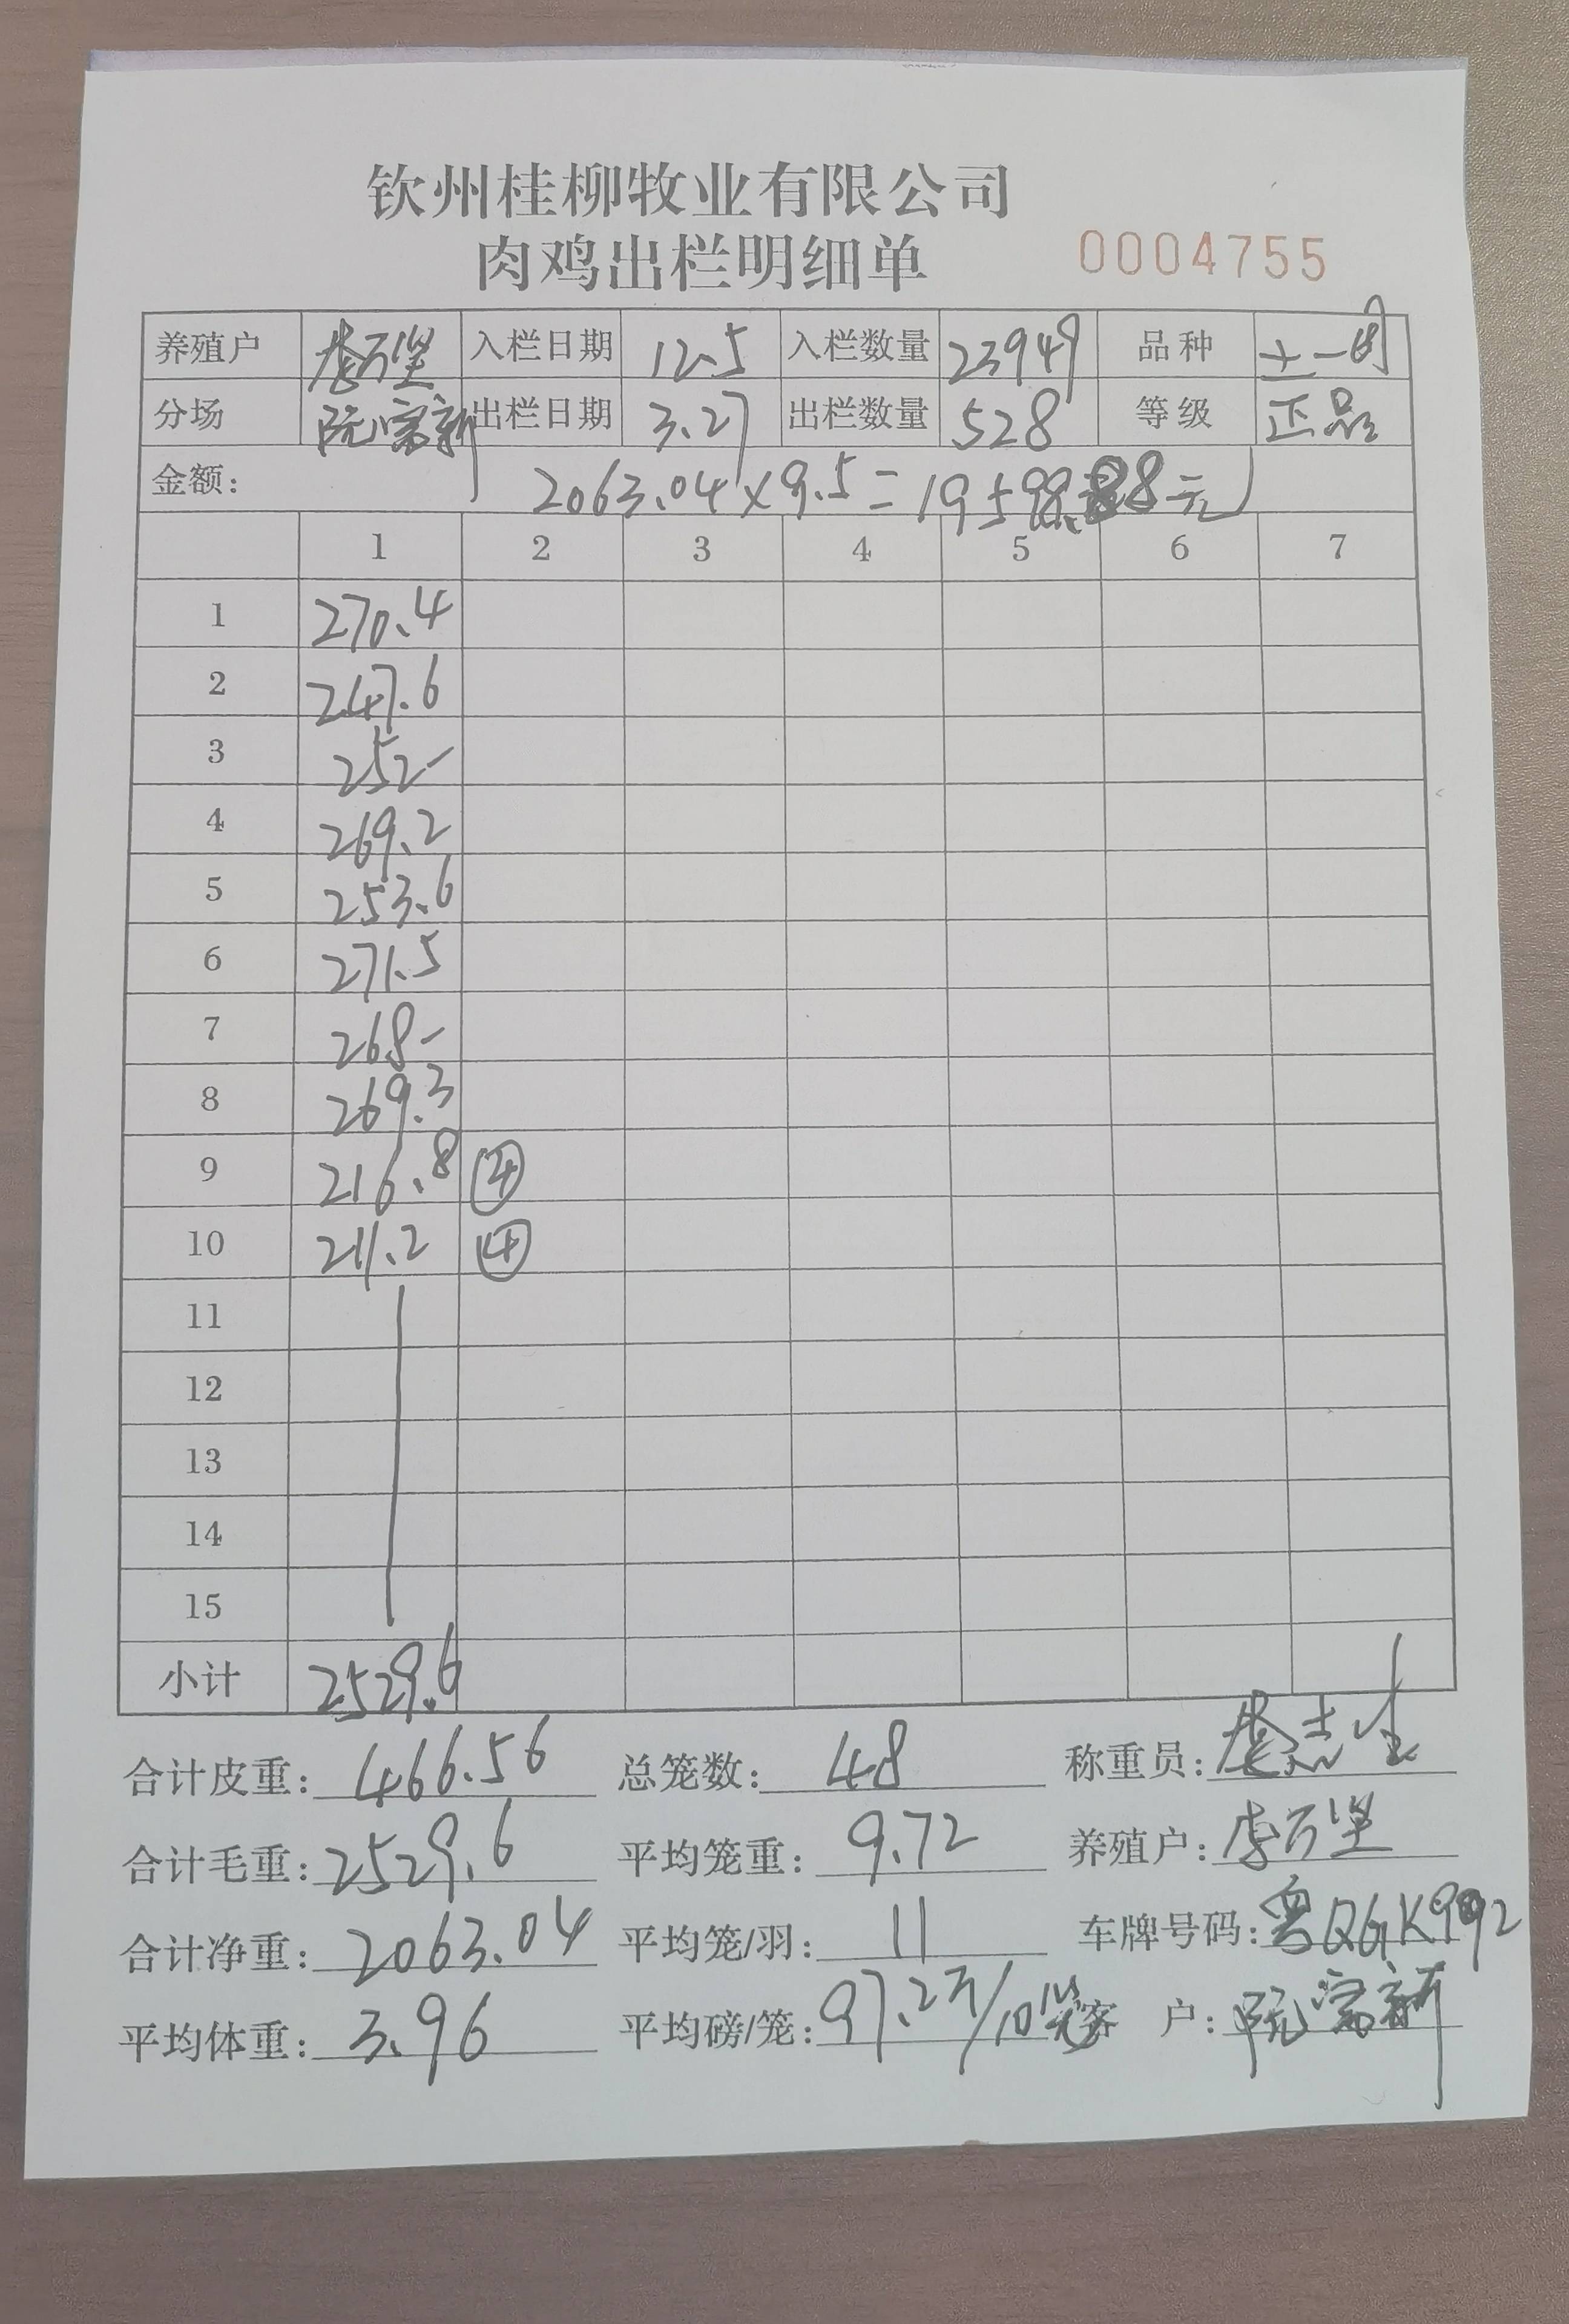 钦州桂柳牧业有限公司
肉鸡出栏明细单 0004755
养殖户 万坚 入栏日期 12.5 入栏数量 23949 品种 土一
分场 阮富新 出栏日期 3.27 出栏数量 528 等级 正品
金额: 2063.04×9.5=19598.88元
1 2 3 4 5 6 7
1 270.4
2 247.6
3 252-
4 269.2
5 253.6
6 271.5
7 268-
8 269.3
9 216.8 ④
10 211.2 ④
11
12
13
14
15
小计 2529.6
合计皮重: 466.56 总笼数: 48 称重员: 志生
合计毛重: 2529.6 平均笼重: 9.72 养殖户: 李万坚
合计净重: 2063.04 平均笼/羽: 11 车牌号码: 粤QGK992
平均体重: 3.96 平均磅/笼: 97.2斤/10笼 客户: 阮富新